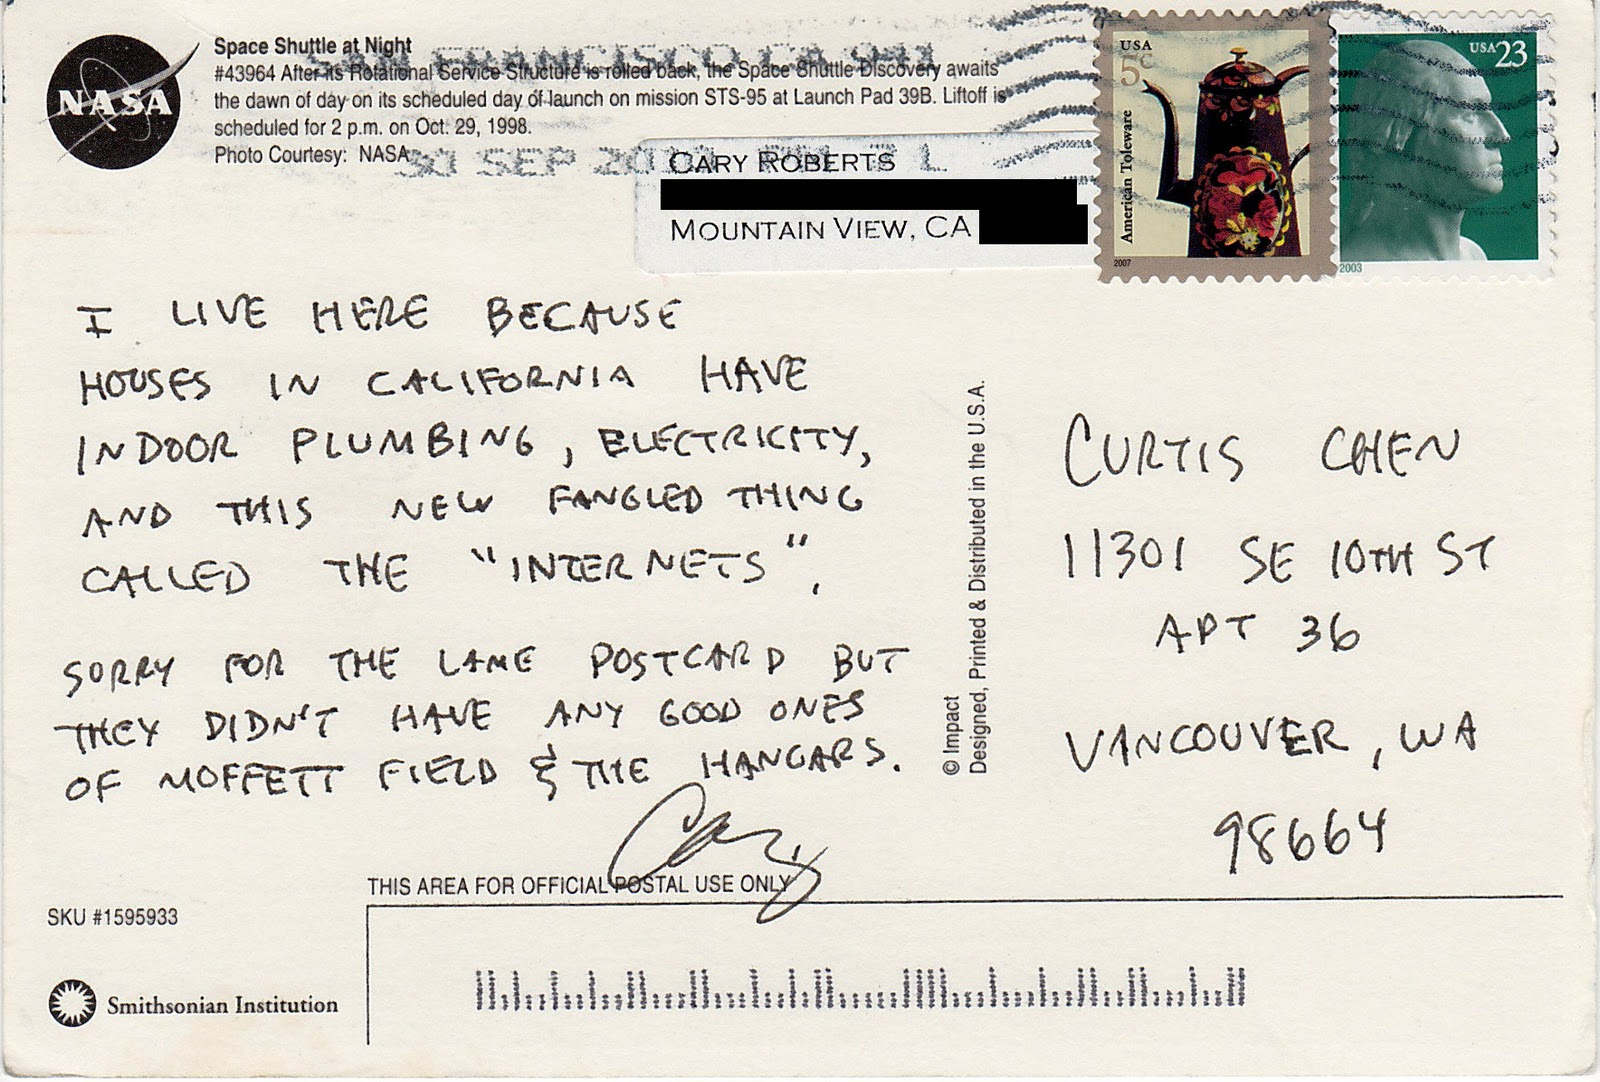 NASA
Space Shuttle at Night
#43964 After its Rotational Service Structure is rolled back, the Space Shuttle Discovery awaits
the dawn of day on its scheduled day of launch on mission STS-95 at Launch Pad 39B. Liftoff is
scheduled for 2 p.m. on Oct. 29, 1998.
Photo Courtesy: NASA
FRANCISCO CA 941
30 SEP
CARY ROBERTS
MOUNTAIN VIEW, CA
USA
5c
American Toleware
2007
USA 23
2003
I LIVE HERE BECAUSE
HOUSES IN CALIFORNIA HAVE
INDOOR PLUMBING, ELECTRICITY,
AND THIS NEW FANGLED THING
CALLED THE "INTERNETS".
SORRY FOR THE LAME POSTCARD BUT
THEY DIDN'T HAVE ANY GOOD ONES
OF MOFFETT FIELD & THE HANGARS.
Cary
© Impact
Designed, Printed & Distributed in the U.S.A.
CURTIS CHEN
11301 SE 10TH ST
APT 36
VANCOUVER, WA
98664
THIS AREA FOR OFFICIAL POSTAL USE ONLY
SKU #1595933
Smithsonian Institution